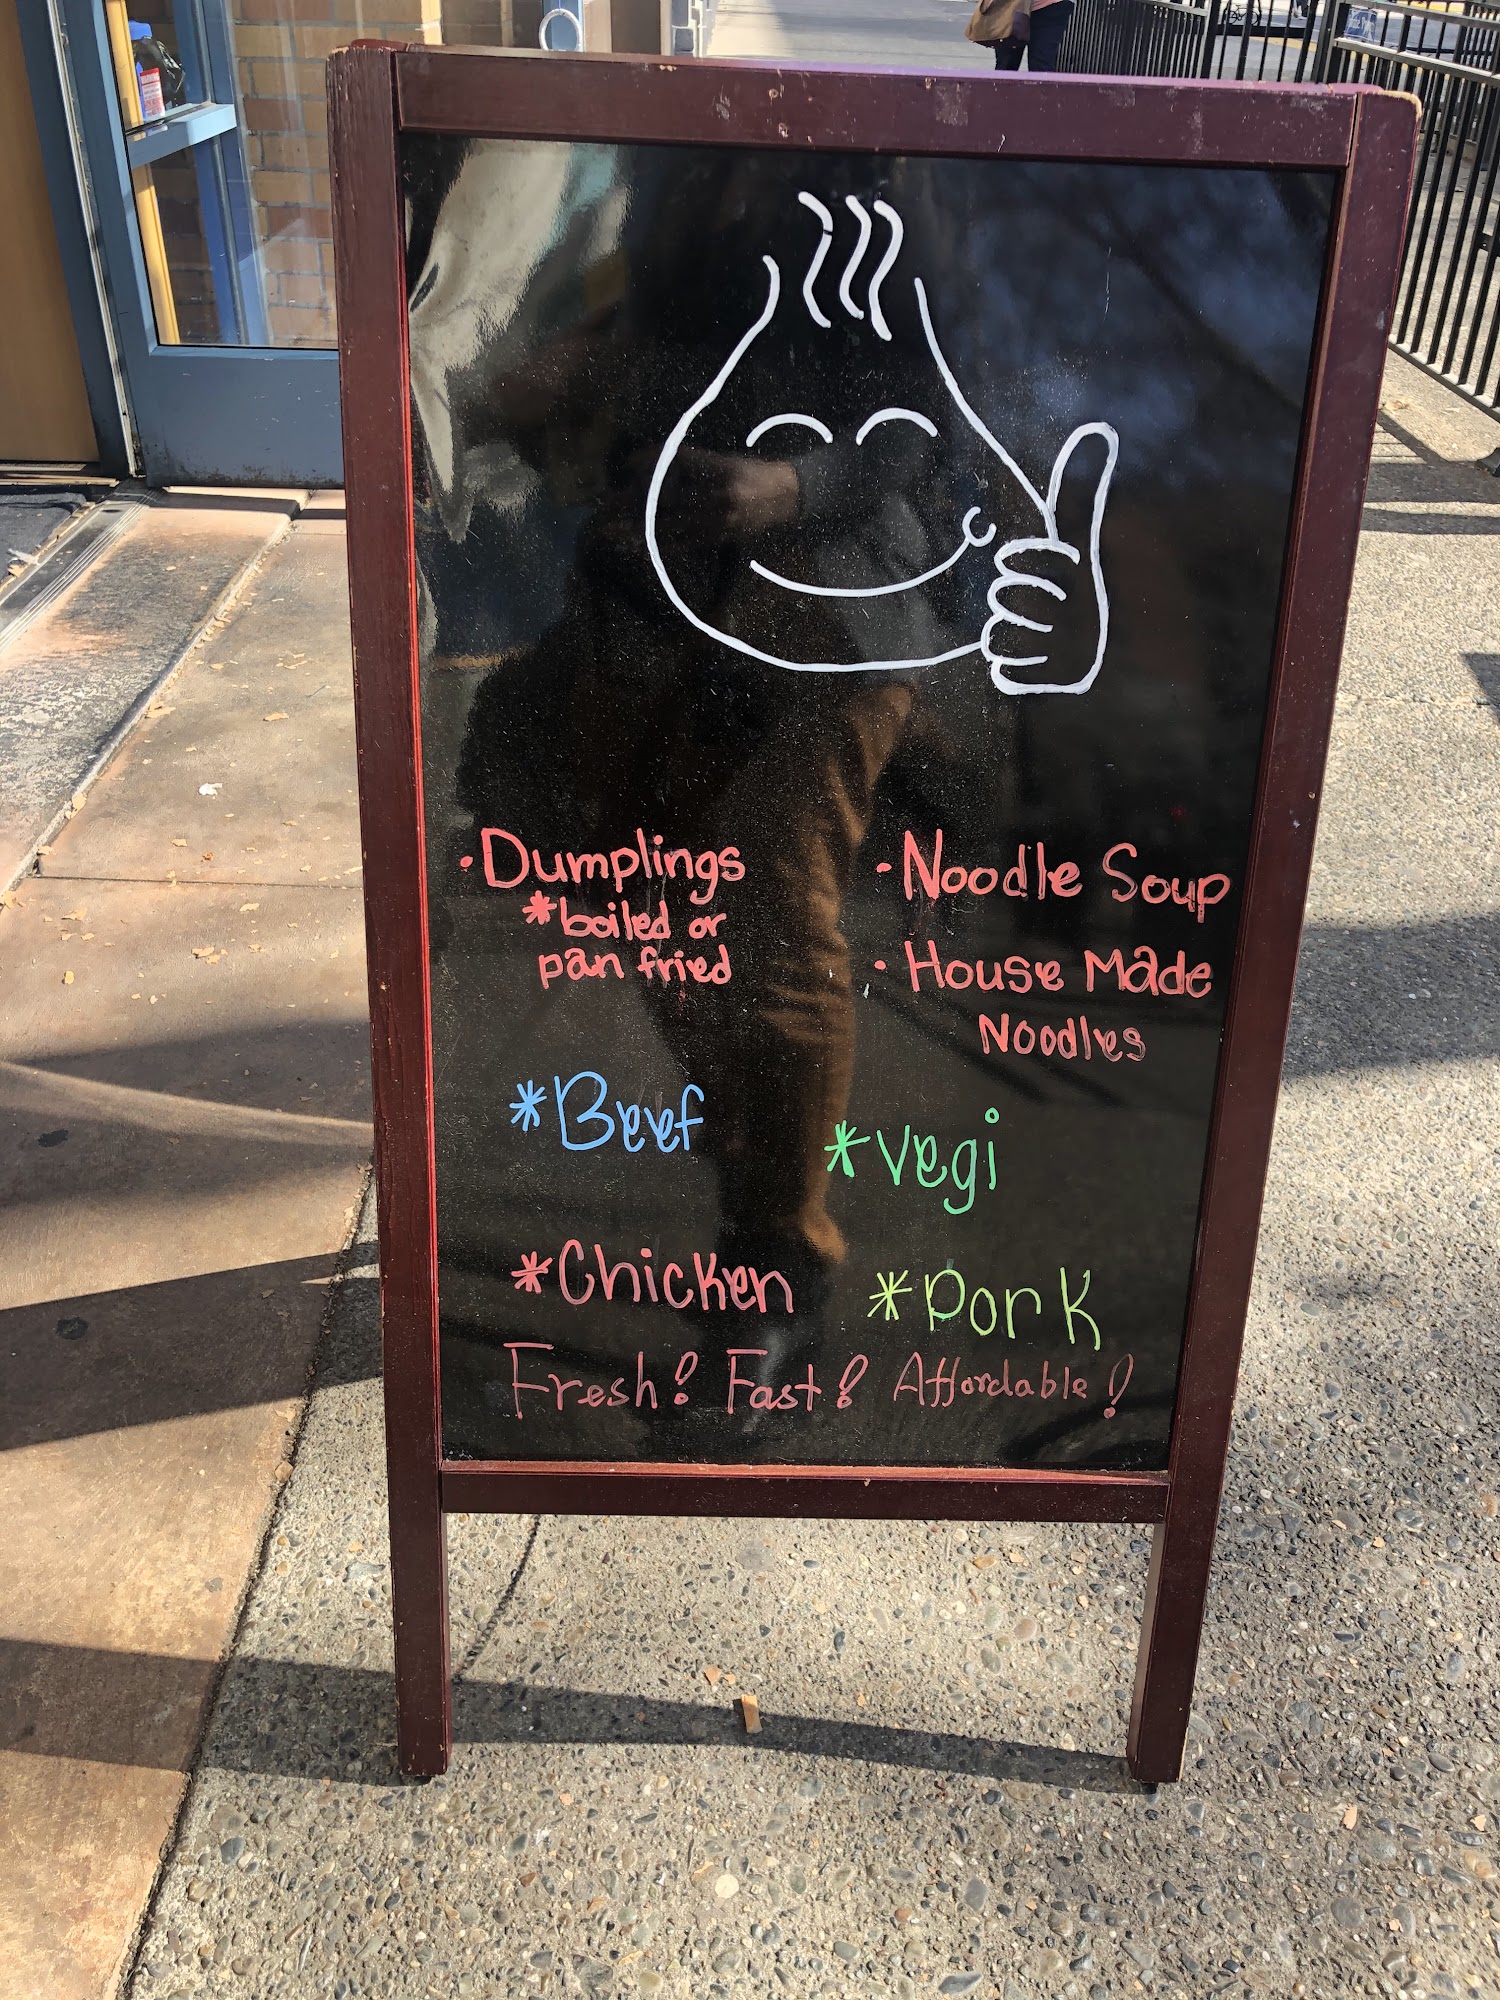 · Dumplings
*boiled or
pan fried
· Noodle Soup
· House Made
Noodles
*Beef
*Vegi
*Chicken
*Pork
Fresh! Fast! Affordable!